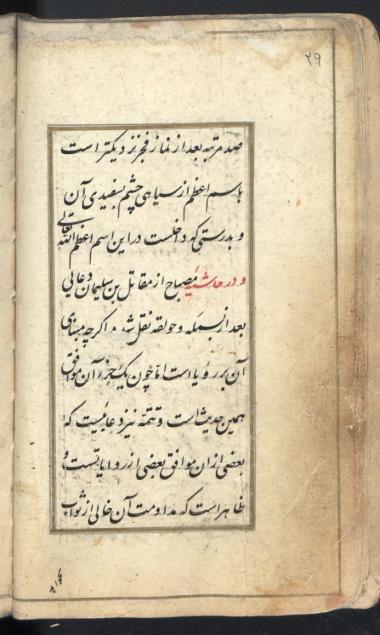 ۲۹
صد مرتبه بعد از نماز فجر نزدیکتر است
باسم اعظم از سیاهی چشم بسفیدی آن
و بدرستی که داخلست در این اسم اعظم الله تعالی
و در حاشیه مصباح از مقاتل بن سلیمان دعایی
بعد از بسمله و حولقه نقل شده اگر چه مبنای
آن بر رؤیا است اما چون یک جزء آن موافق
همین حدیث است و تتمه نیز دعائیست که
بعضی از ان موافق بعضی از روایاتست و
ظاهر است که مداومت آن خالی از ثواب